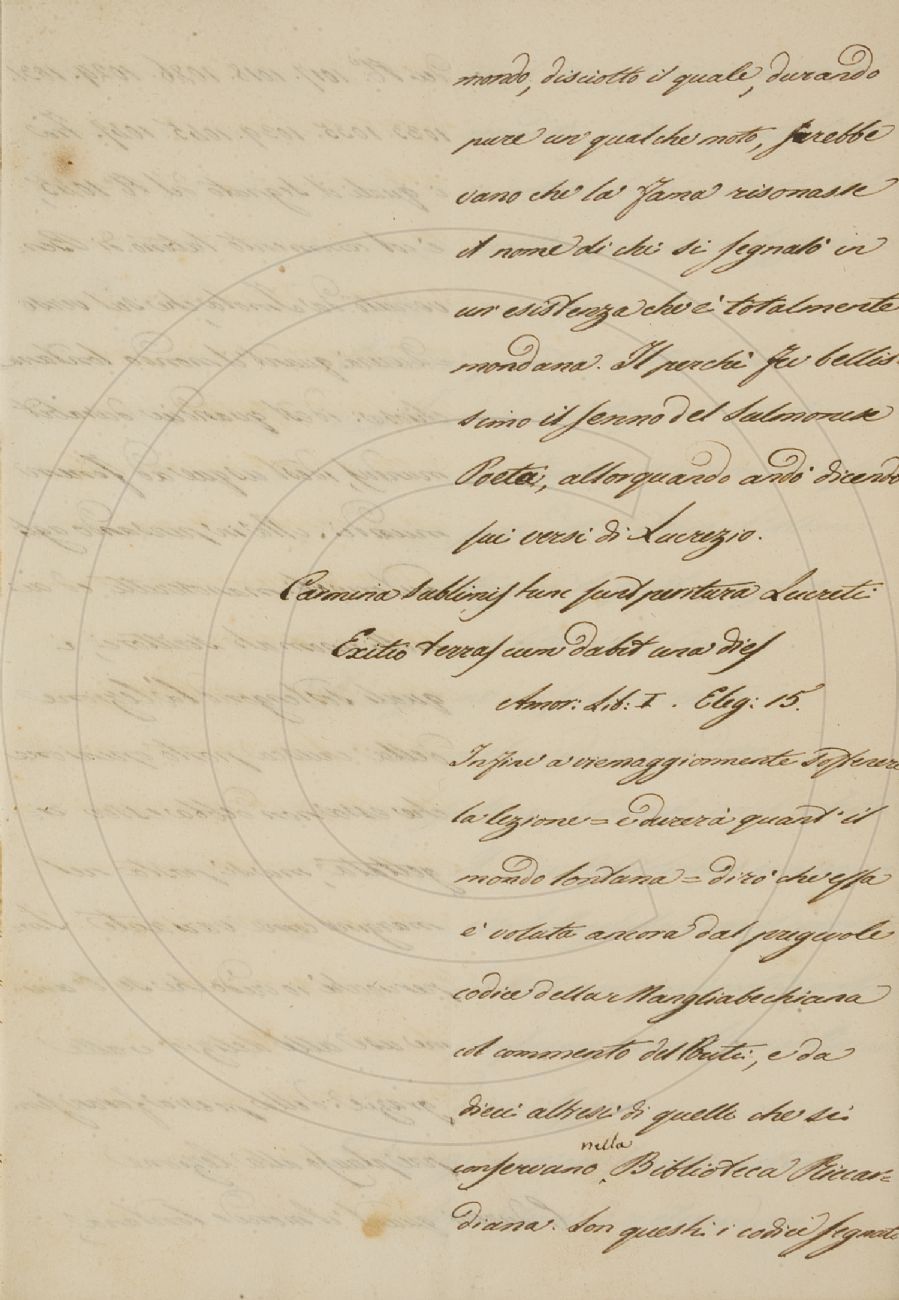 mondo, disciolto il quale, durando
pure un qualche moto, sarebbe
vano che la Fama risonasse
il nome di chi si segnalò in
un'esistenza che è totalmente
mondana. Il perchè fu bellis-
simo il senno del Sulmonese
Poeta, allorquando andò dicendo
sui versi di Lucrezio.
Carmina sublimis tunc sunt peritura Lucreti
Exitio terras cum dabit una dies
Amor: Lib: I. Eleg: 15.
Infine a viemaggiormente sostenere
la lezione = e durerà quant'il
mondo lontana = dirò che essa
è voluta ancora dal pregevole
codice della Mangliabechiana
col commento del Buti, e da
dieci altresì di quelli che si
conservano nella Biblioteca Riccar=
diana. Son questi i codici segnati